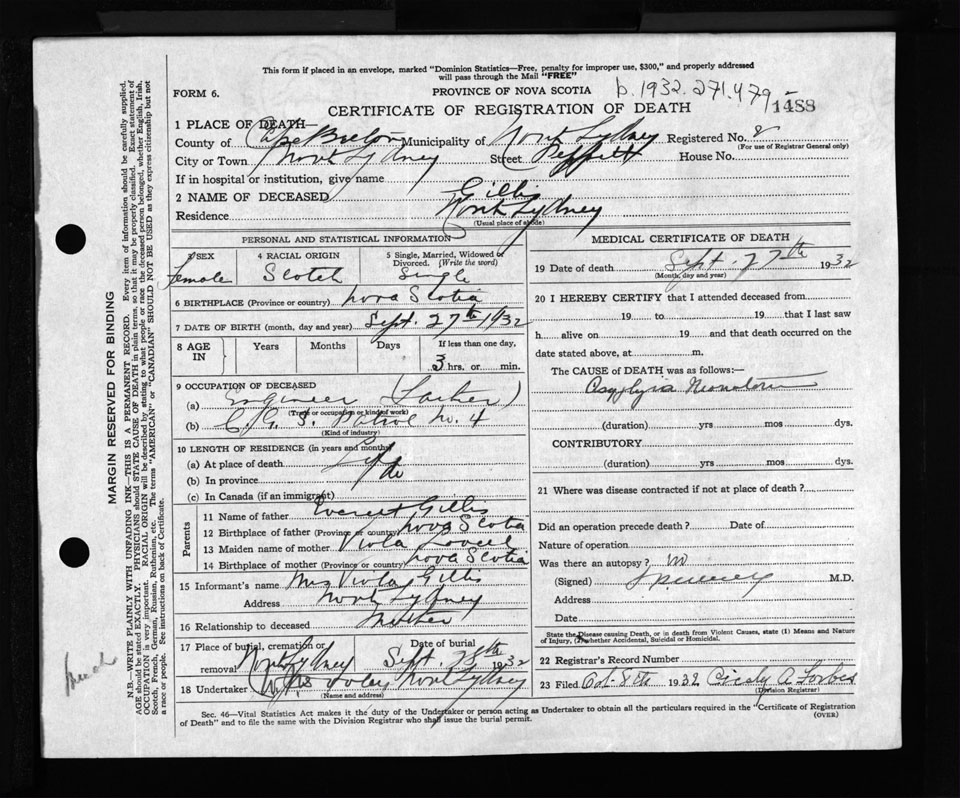 This form if placed in an envelope, marked "Dominion Statistics—Free, penalty for improper use, $300," and properly addressed
will pass through the Mail "FREE"
FORM 6.
PROVINCE OF NOVA SCOTIA
b. 1932.271.479
CERTIFICATE OF REGISTRATION OF DEATH
1488
1 PLACE OF DEATH—
County of Cape Breton Municipality of North Sydney Registered No. 8
(For use of Registrar General only)
City or Town North Sydney Street Peppett House No.
If in hospital or institution, give name
2 NAME OF DECEASED Gillis
Residence North Sydney
(Usual place of abode)
PERSONAL AND STATISTICAL INFORMATION
3 SEX Female
4 RACIAL ORIGIN Scotch
5 Single, Married, Widowed or Divorced. (Write the word) Single
6 BIRTHPLACE (Province or country) Nova Scotia
7 DATE OF BIRTH (month, day and year) Sept. 27th 1932
8 AGE IN Years Months Days If less than one day, 3 hrs. or min.
9 OCCUPATION OF DECEASED
(a) Engineer (Father)
(Trade or occupation or kind of work)
(b) C. G. S. Patrol No. 4
(Kind of industry)
10 LENGTH OF RESIDENCE (in years and months)
(a) At place of death Life
(b) In province do
(c) In Canada (if an immigrant)
Parents
11 Name of father Everett Gillis
12 Birthplace of father (Province or country) Nova Scotia
13 Maiden name of mother Viola Lovell
14 Birthplace of mother (Province or country) Nova Scotia
15 Informant's name Mrs Viola Gillis
Address North Sydney
16 Relationship to deceased Mother
17 Place of burial, cremation or removal North Sydney Date of burial Sept. 28th 1932
18 Undertaker North Sydney
(Name and address)
MEDICAL CERTIFICATE OF DEATH
19 Date of death Sept. 27th 1932
(Month, day and year)
20 I HEREBY CERTIFY that I attended deceased from
19 to 19 that I last saw
h alive on 19 and that death occurred on the
date stated above, at m.
The CAUSE of DEATH was as follows:—
Asphyxia Neonatorum
(duration) yrs mos dys.
CONTRIBUTORY
(duration) yrs mos dys.
21 Where was disease contracted if not at place of death?
Did an operation precede death? Date of
Nature of operation
Was there an autopsy? no
(Signed) M.D.
Address
Date
State the Disease causing Death, or in death from Violent Causes, state (1) Means and Nature
of Injury, (2) whether Accidental, Suicidal or Homicidal.
22 Registrar's Record Number
23 Filed Oct. 8th 1932 Cicely A. Forbes
(Division Registrar)
Sec. 46—Vital Statistics Act makes it the duty of the Undertaker or person acting as Undertaker to obtain all the particulars required in the "Certificate of Registration
of Death" and to file the same with the Division Registrar who shall issue the burial permit.
(OVER)
MARGIN RESERVED FOR BINDING
N.B.—WRITE PLAINLY WITH UNFADING INK—THIS IS A PERMANENT RECORD. Every item of information should be carefully supplied.
AGE should be stated EXACTLY. PHYSICIANS should STATE CAUSE OF DEATH in plain terms, so that it may be properly classified. Exact statement of
OCCUPATION is very important. RACIAL ORIGIN will be described by stating to what people or race the deceased person belonged, whether English, Irish,
Scotch, French, German, Russian, Ruthenian, etc. The terms "AMERICAN" or "CANADIAN" SHOULD NOT BE USED as they express citizenship but not
a race or people. See instructions on back of Certificate.